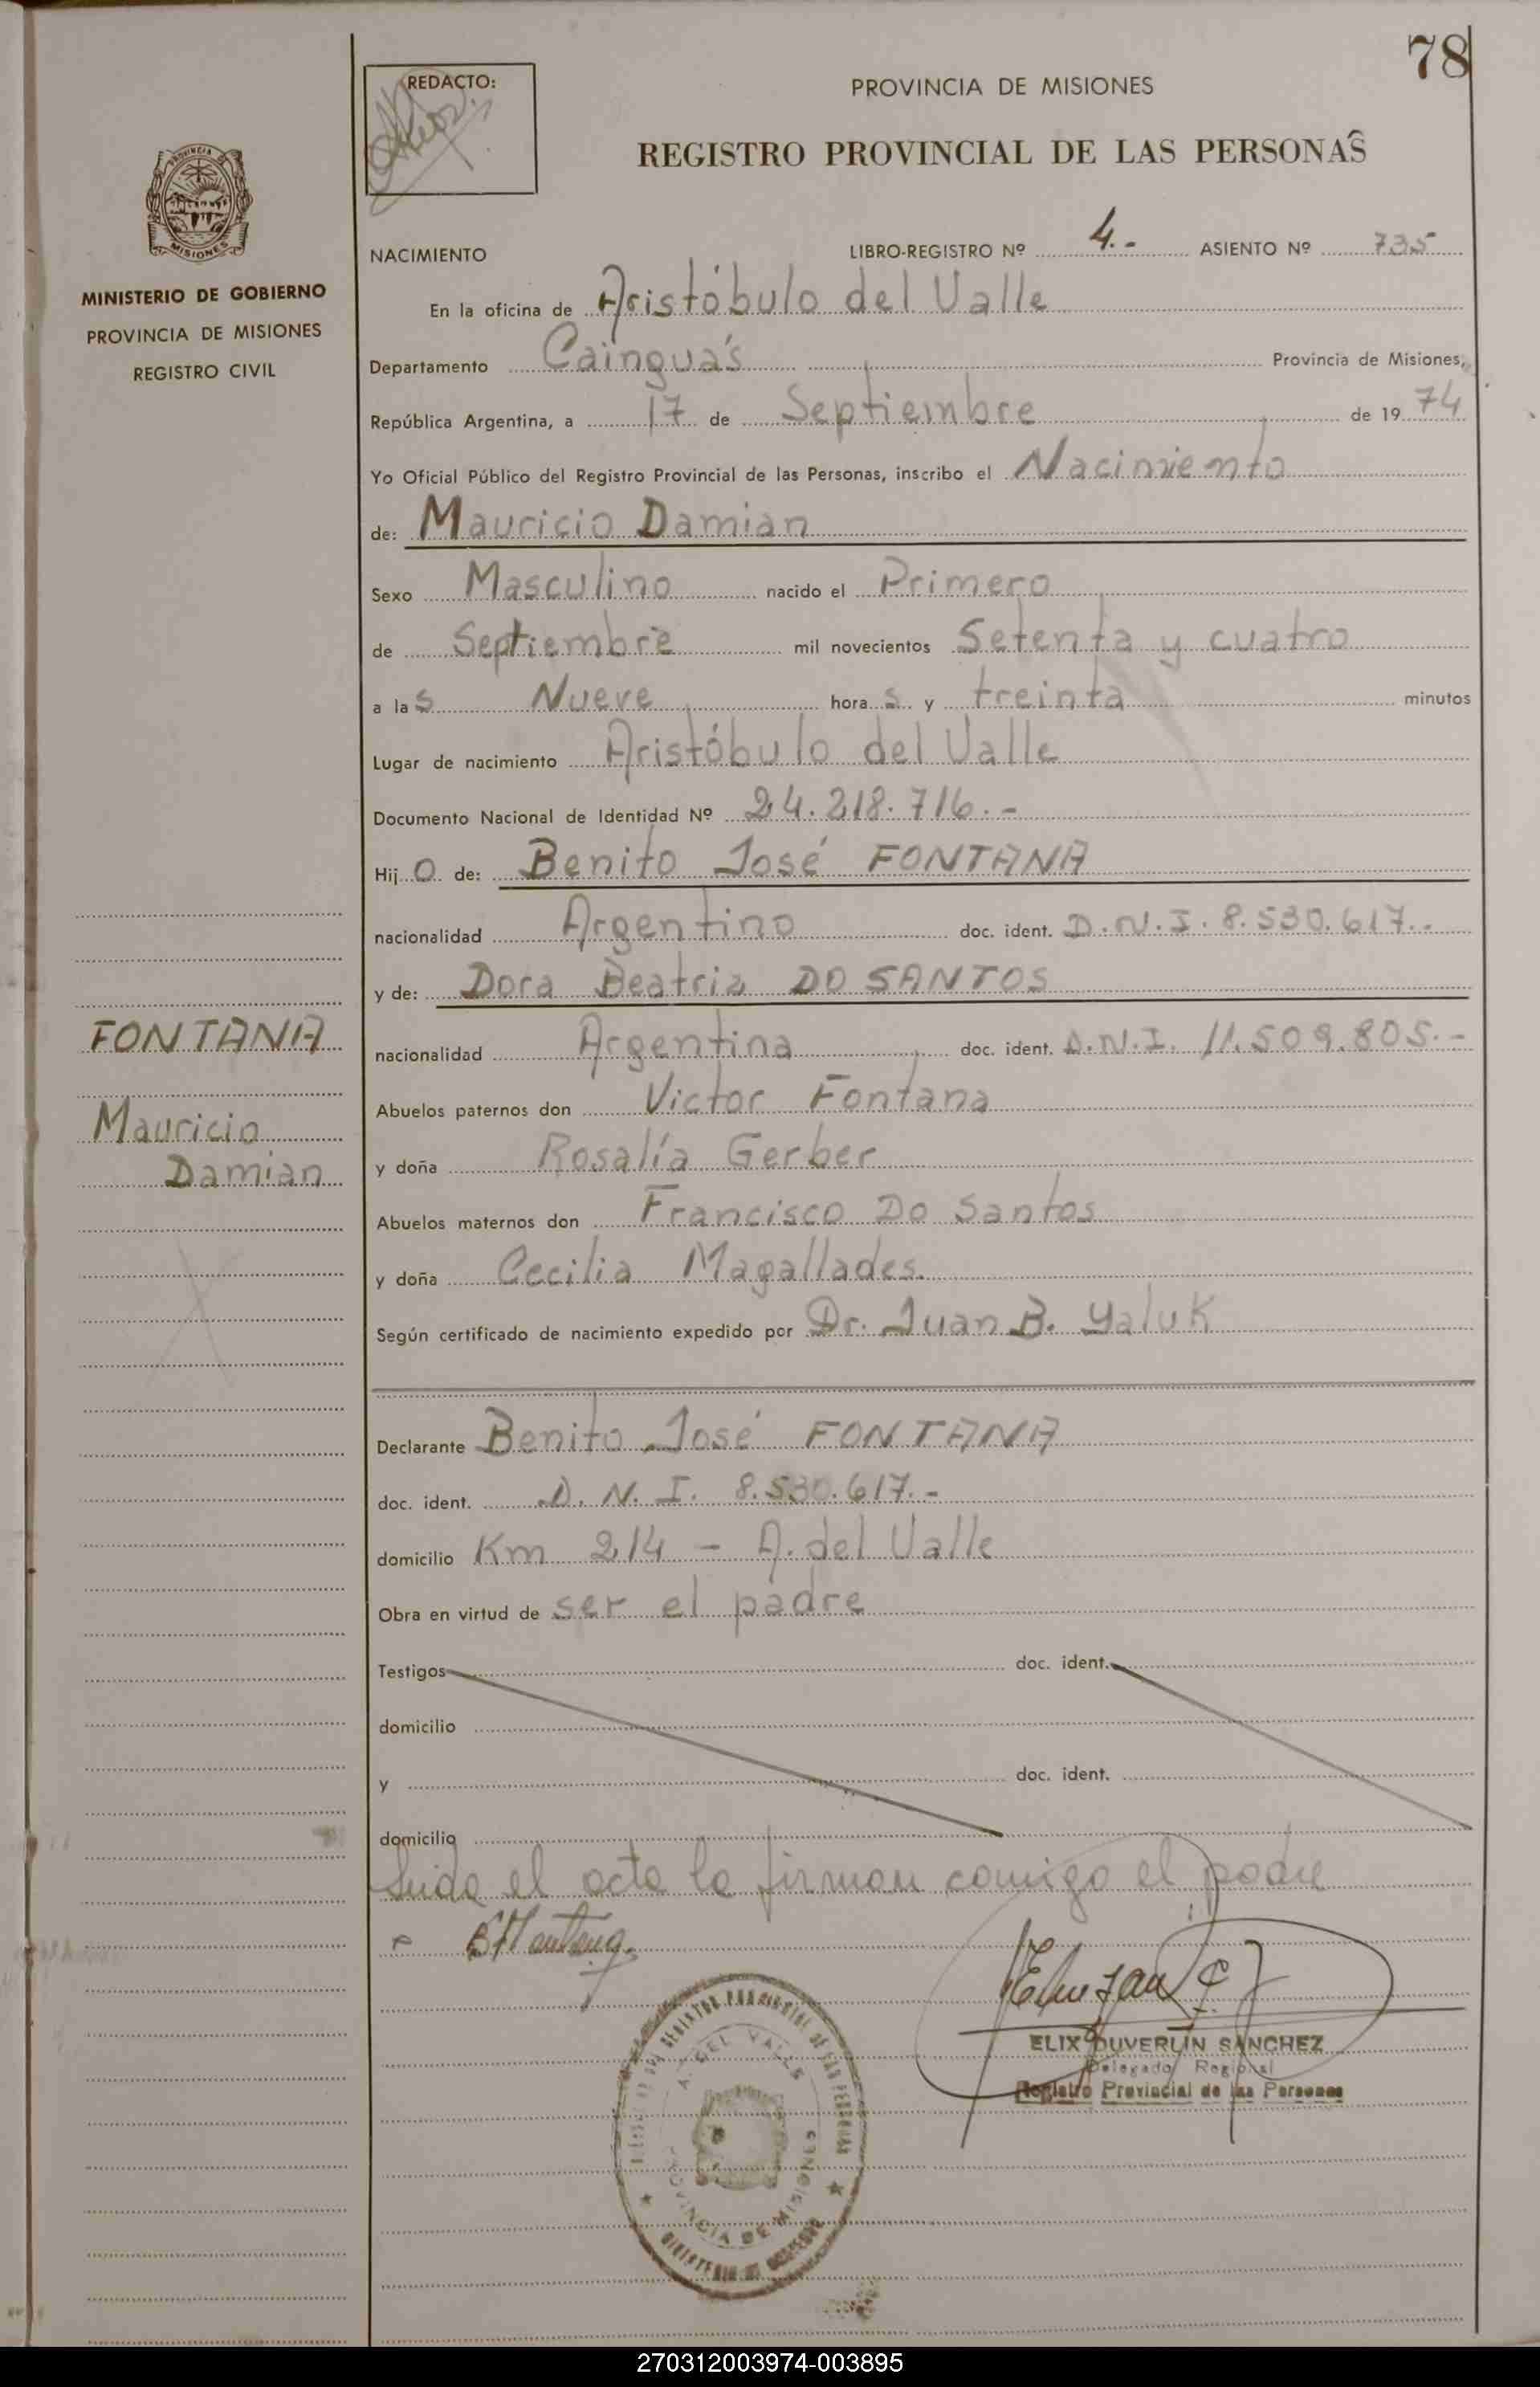 78
REDACTO:
PROVINCIA DE MISIONES
REGISTRO PROVINCIAL DE LAS PERSONAS
PROVINCIA
MISIONES
MINISTERIO DE GOBIERNO
PROVINCIA DE MISIONES
REGISTRO CIVIL
NACIMIENTO LIBRO-REGISTRO Nº 4.- ASIENTO Nº 735
En la oficina de Aristóbulo del Valle
Departamento Cainguás Provincia de Misiones,
República Argentina, a 17 de Septiembre de 1974
Yo Oficial Público del Registro Provincial de las Personas, inscribo el Nacimiento
de: Mauricio Damian
Sexo Masculino nacido el Primero
de Septiembre mil novecientos Setenta y cuatro
a las Nueve horas y treinta minutos
Lugar de nacimiento Aristóbulo del Valle
Documento Nacional de Identidad Nº 24.218.716.-
Hijo de: Benito José FONTANA
nacionalidad Argentino doc. ident. D.N.I. 8.530.617..
y de: Dora Beatriz DO SANTOS
nacionalidad Argentina doc. ident. D.N.I. 11.509.805.-
Abuelos paternos don Victor Fontana
y doña Rosalía Gerber
Abuelos maternos don Francisco Do Santos
y doña Cecilia Magallades.
Según certificado de nacimiento expedido por Dr. Juan B. Yaluk
FONTANA
Mauricio
Damian
Declarante Benito José FONTANA
doc. ident. D.N.I. 8.530.617.-
domicilio Km 214 - A. del Valle
Obra en virtud de ser el padre
Testigos doc. ident.
domicilio
y doc. ident.
domicilio
Leida el acta la firman comigo el padre
ELIX DUVERLIN SANCHEZ
Delegado Regional
Registro Provincial de las Personas
REGISTRO PROVINCIAL DE LAS PERSONAS
A. DEL VALLE
PROVINCIA DE MISIONES
MINISTERIO DE GOBIERNO
270312003974-003895